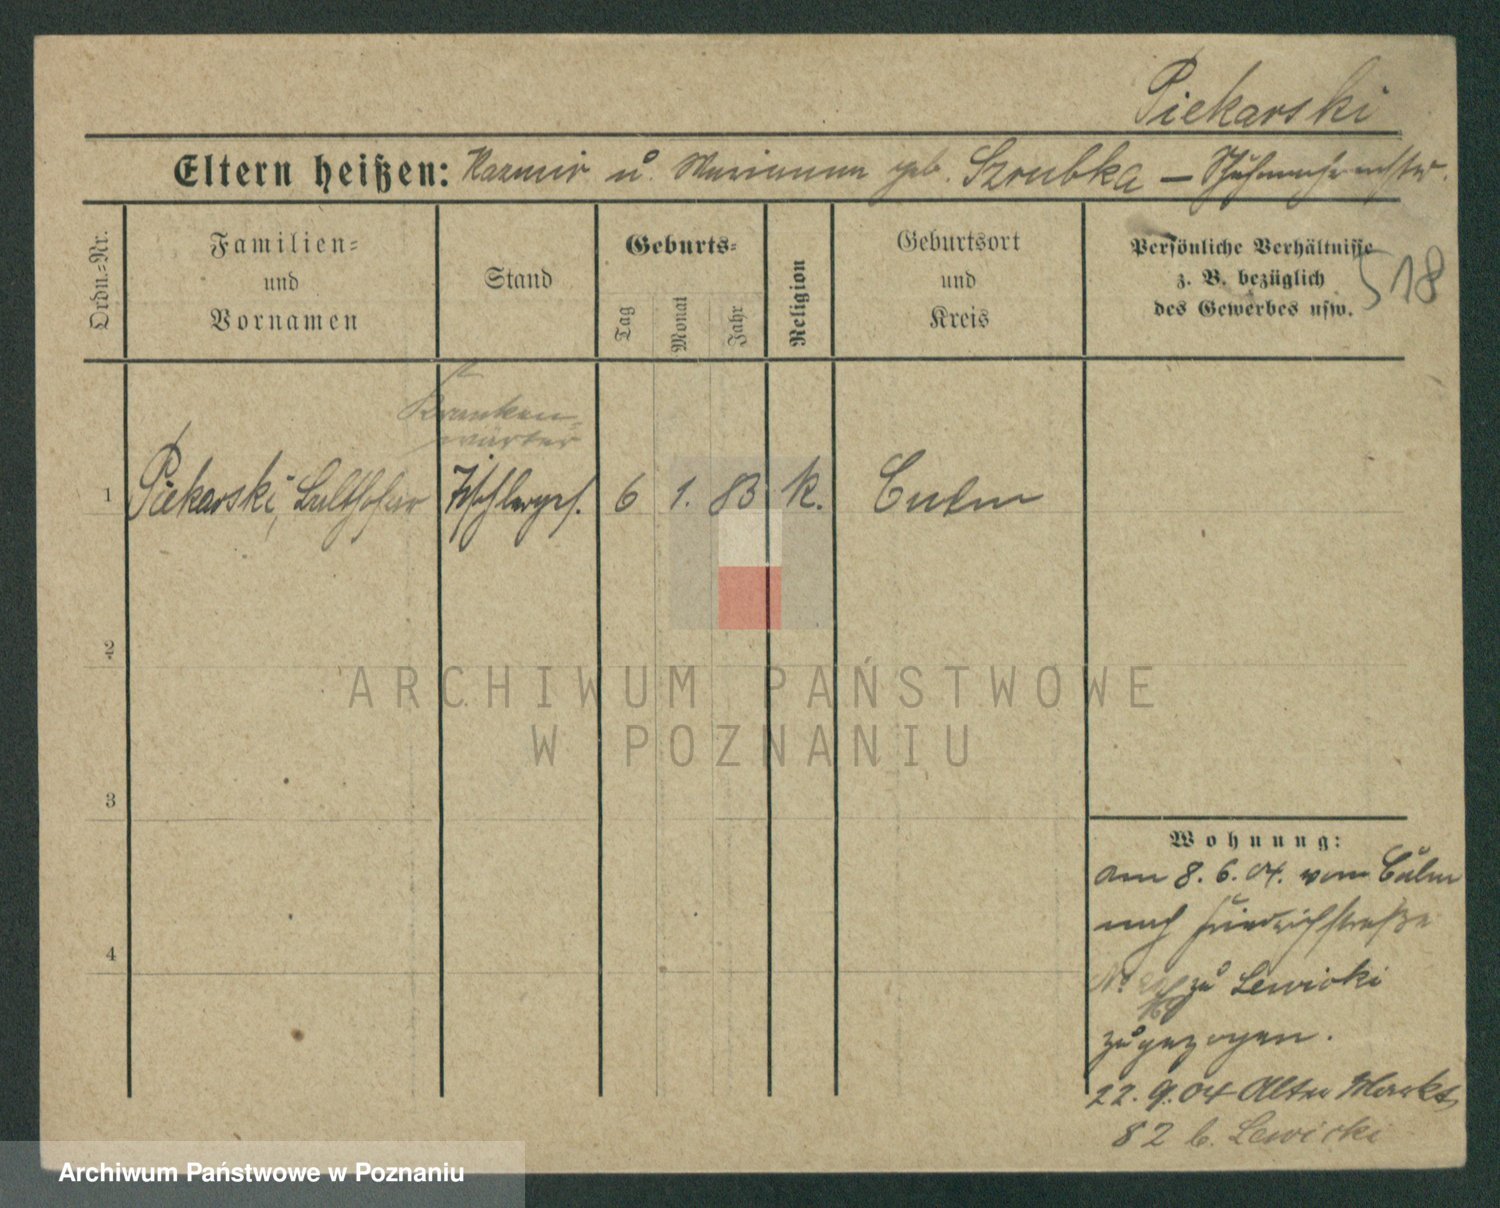 Piekarski
Eltern heißen: Kazmir u. Marianna geb. Szrubka – Schuhmachermstr.
Ordn.-Nr.
Familien-
und
Vornamen
Stand
Geburts-
Tag
Monat
Jahr
Religion
Geburtsort
und
Kreis
Persönliche Verhältnisse
z. B. bezüglich
des Gewerbes usw.
518
Kranken-
wärter
1 Piekarski, Balthasar Tischlerges. 6 1. 83 K. Culm
2
3
4
Wohnung:
am 8. 6. 04. von Culm
nach Friedrichstraße
No zu Lewicki
zugezogen.
22. 9. 04 Alter Markt
82 b. Lewicki
ARCHIWUM PAŃSTWOWE
W POZNANIU
Archiwum Państwowe w Poznaniu